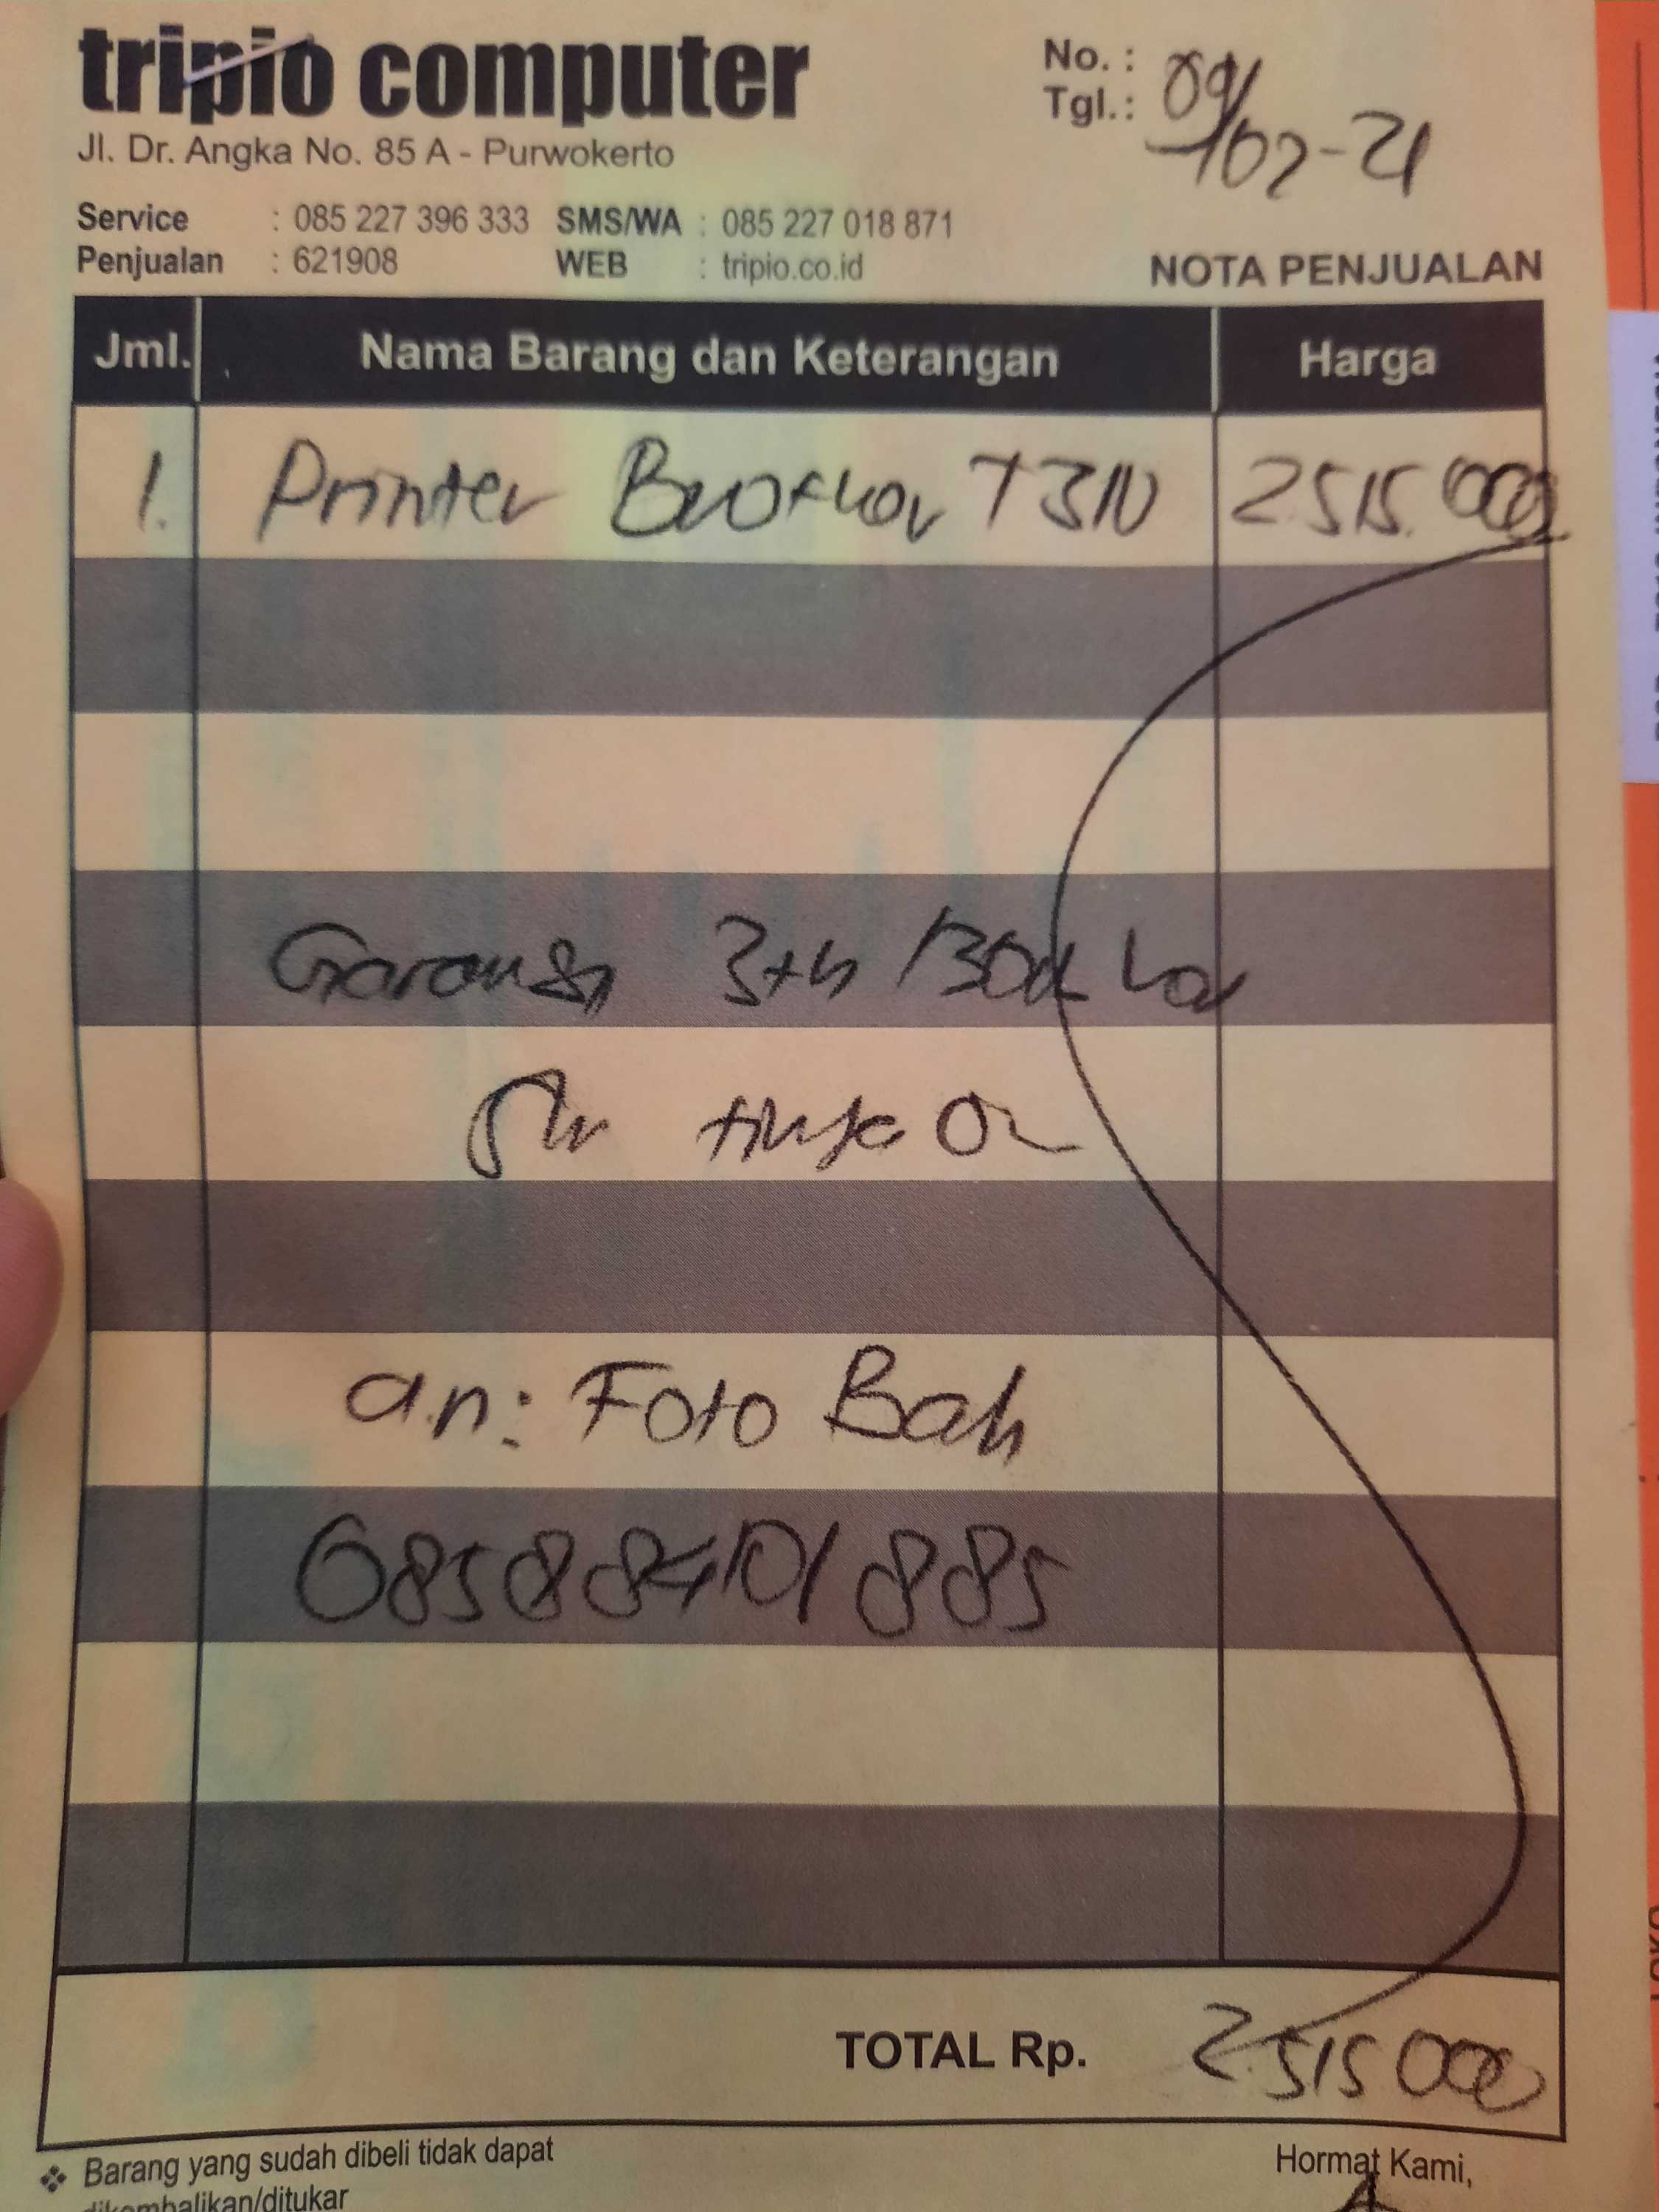 tripio computer
Jl. Dr. Angka No. 85 A - Purwokerto
No. :
Tgl. : 09/02-21
Service : 085 227 396 333 SMS/WA : 085 227 018 871
Penjualan : 621908 WEB : tripio.co.id
NOTA PENJUALAN
Jml. Nama Barang dan Keterangan Harga
1. Printer Brother T310 2515.000
Garansi 3th
an: Foto Bah
085884101885
TOTAL Rp. 2515000
Barang yang sudah dibeli tidak dapat
dikembalikan/ditukar
Hormat Kami,